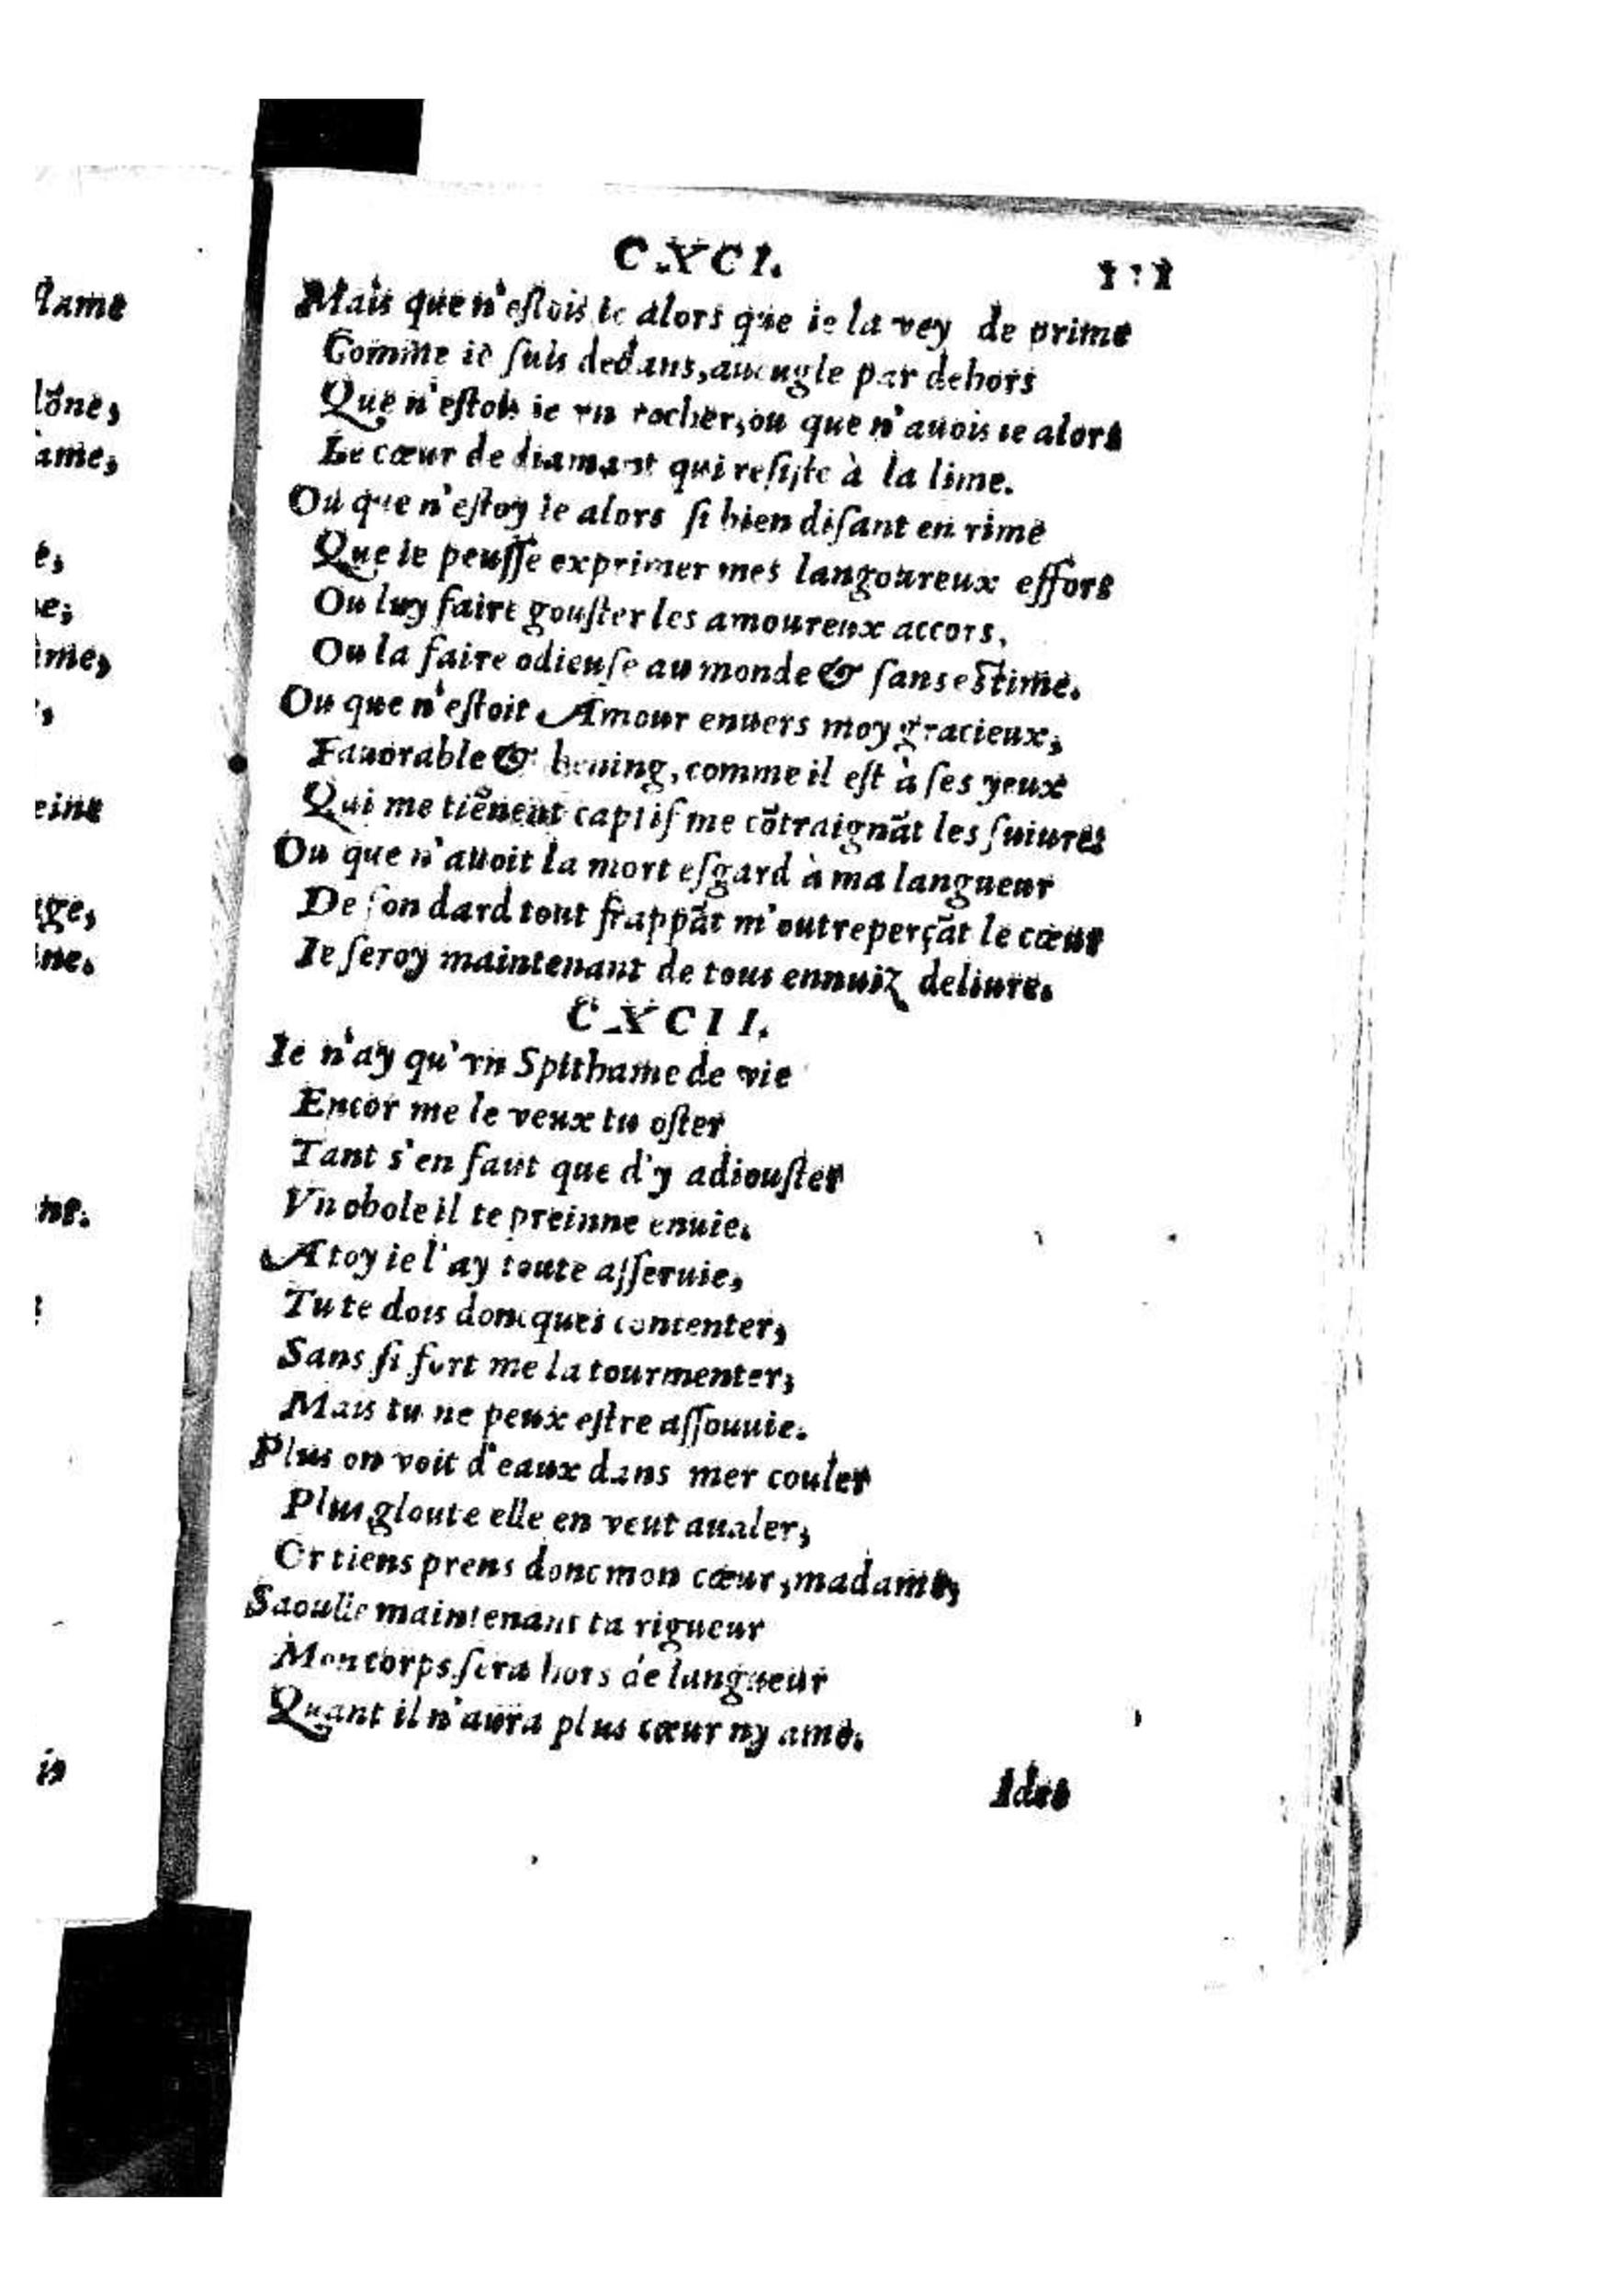 CXCI.
Mais que n'estois ie alors que ie la vey de prime
Comme ie ſuis dedans, aueugle par dehors
Que n'eſtois ie vn rocher, ou que n'auois ie alors
Le cœur de diamant qui reſiſte à la lime.
Ou que n'eſtoy ie alors ſi bien diſant en rime
Que ie peuſſe exprimer mes langoureux effors
Ou luy faire gouſter les amoureux accors,
Ou la faire odieuſe au monde & ſans eſtime.
Ou que n'eſtoit Amour enuers moy gracieux,
Fauorable & bening, comme il eſt à ſes yeux
Qui me tiẽnent captif me cõtraignãt les ſuiures
Ou que n'auoit la mort eſgard à ma langueur
De ſon dard tout frappãt m'outreperçãt le cœur
Ie ſeroy maintenant de tous ennuiz deliure.
CXCII.
Ie n'ay qu'vn Spithame de vie
Encor me le veux tu oſter
Tant s'en faut que d'y adiouſter
Vn obole il te preinne enuie.
A toy ie l'ay toute aſſeruie,
Tu te dois doncques contenter,
Sans ſi fort me la tourmenter,
Mais tu ne peux eſtre aſſouuie.
Plus on voit d'eaux dans mer couler
Plus gloute elle en veut aualer,
Or tiens prens donc mon cœur, madame,
Saoulle maintenant ta rigueur
Mon corps ſera hors de langueur
Quant il n'aura plus cœur ny ame.